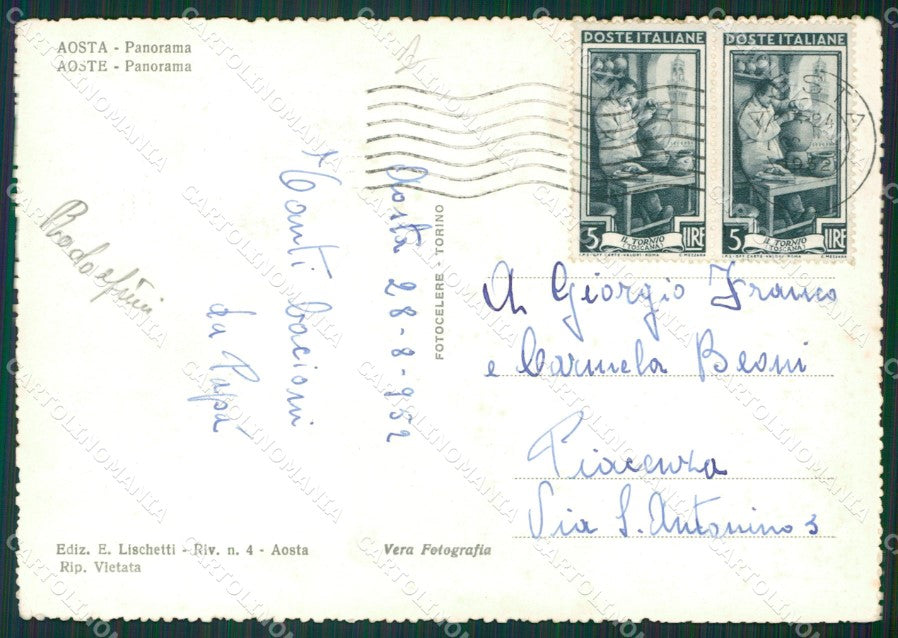 AOSTA - Panorama
AOSTE - Panorama
POSTE ITALIANE
5 IL TORNIO (TOSCANA) LIRE
POSTE ITALIANE
5 IL TORNIO (TOSCANA) LIRE
Aosta 28-8-952
Tanti bacioni
da Papà
FOTOCELERE - TORINO
A Giorgio Franco
e Carmela Beoni
Piacenza
Via S. Antonino 3
Ediz. E. Lischetti - Riv. n. 4 - Aosta
Rip. Vietata
Vera Fotografia
CARTOLINOMANIA